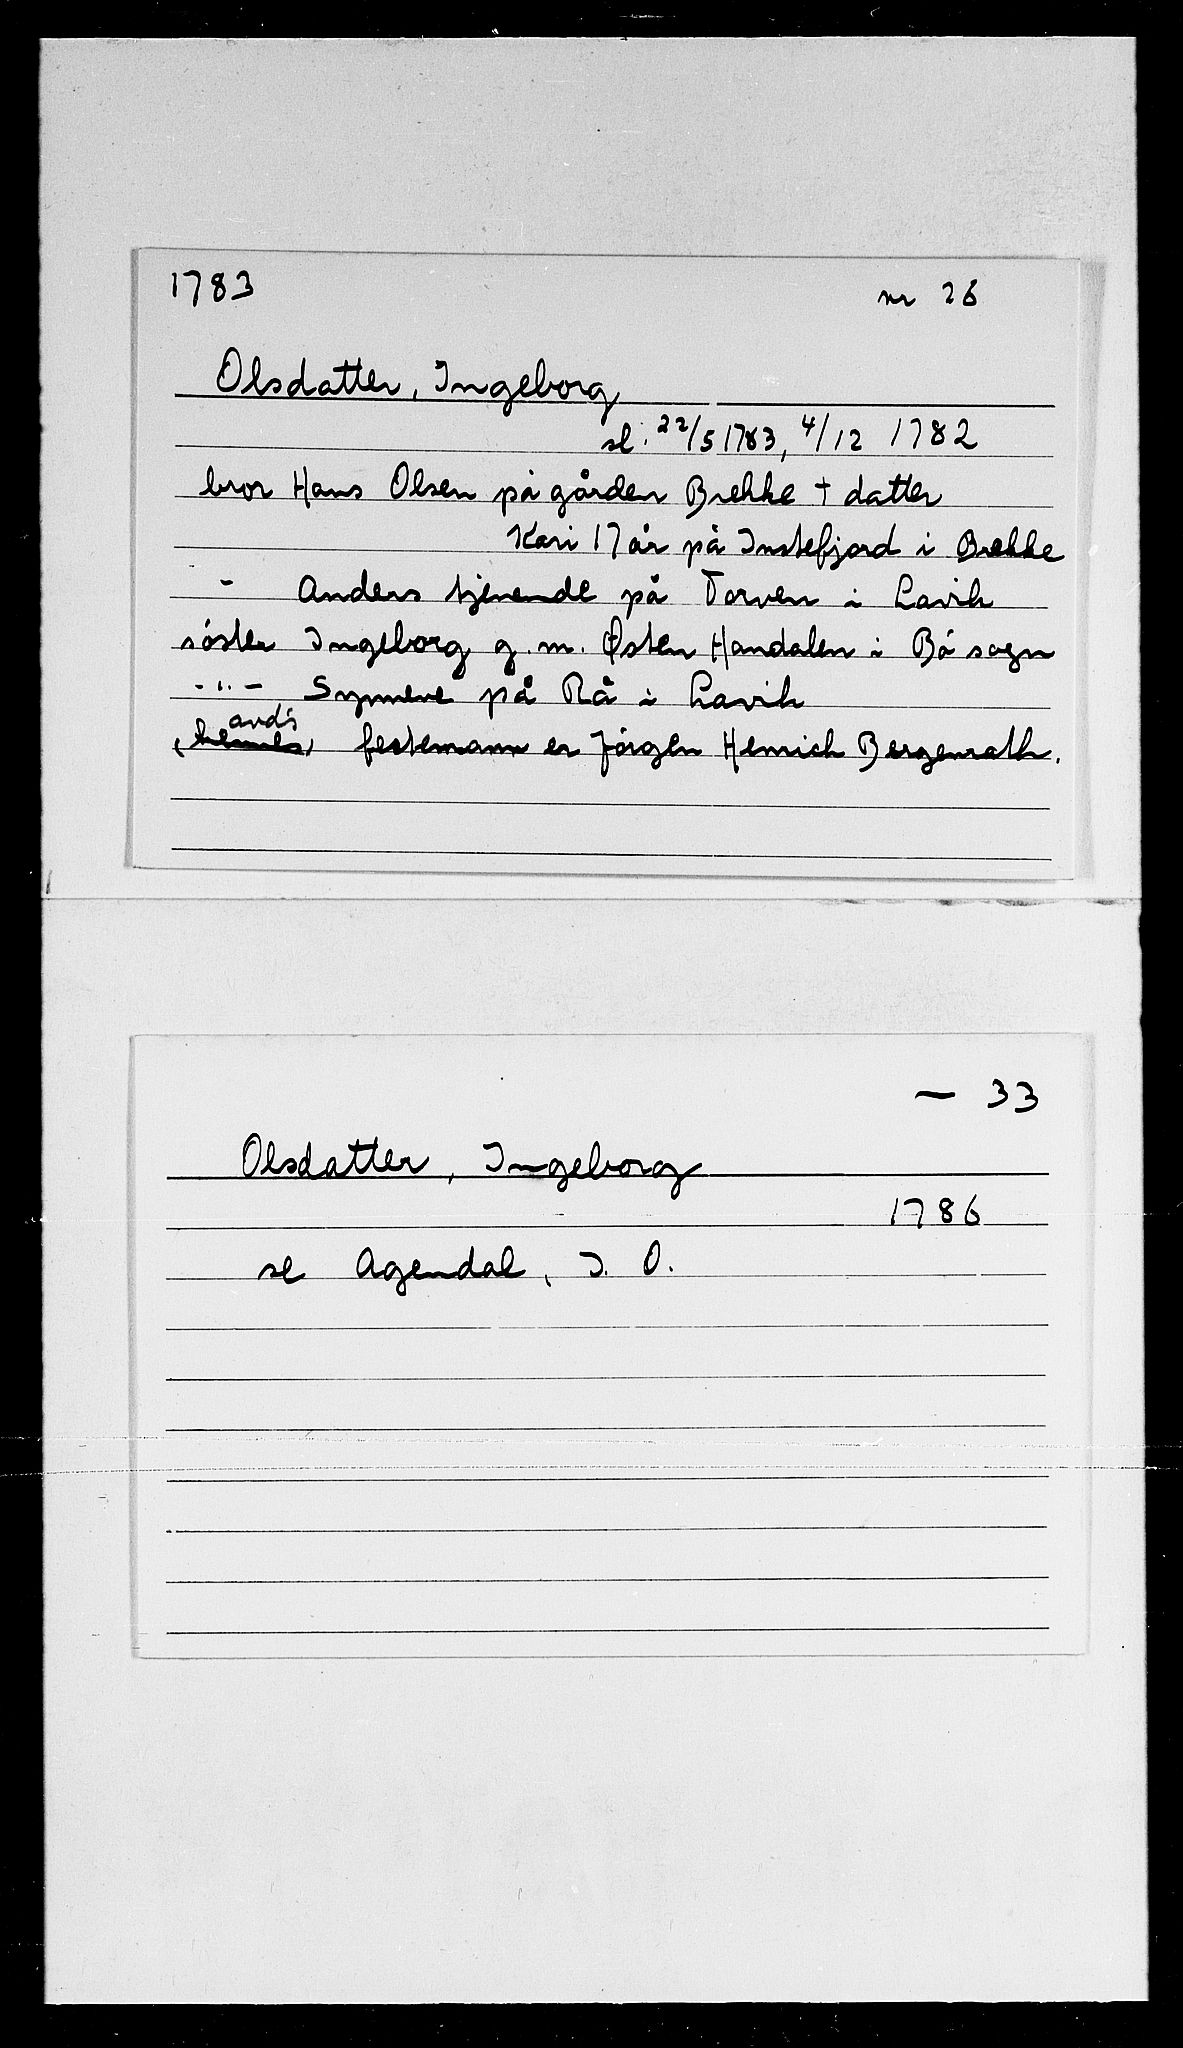 1783 nr 26
Olsdatter, Ingeborg
sl. 22/5 1783, 4/12 1782
bror Hans Olsen på gården Brekke † datter
Kari 17 år på Instefjord i Brekke
- Anders tjenende på Torven i Lavik
söster Ingeborg g.m. Østen Handalen i Bö sogn
-"- Synneve på Rå i Lavik
avd's
(hennes) festemann er Jörgen Henrich Bergenrath.
— 33
Olsdatter, Ingeborg
1786
se Agendal, I. O.